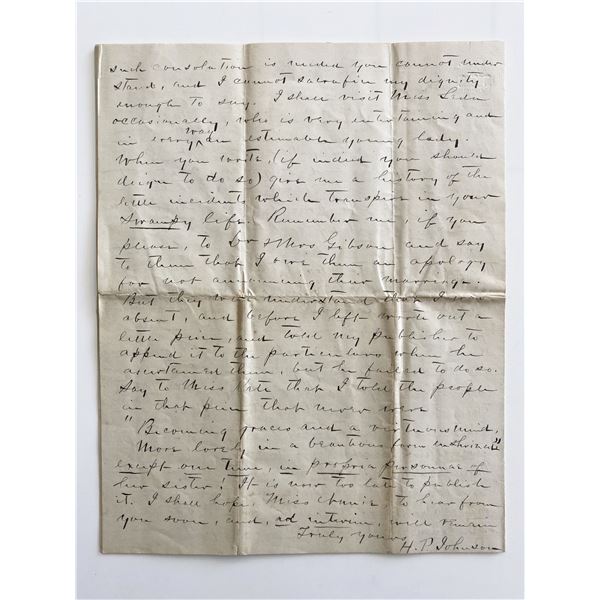 such consolation is needed you cannot under
stand, and I cannot sacrifice my dignity
enough to say. I shall visit Miss Leda
occasionally, who is very entertaining and
in every way an estimable young lady.
When you write, (if indeed you should
deign to do so) give me a history of the
little incidents which transpire in your
swampy life. Remember me, if you
please, to Dr & Mrs Gibson and say
to them that I owe them an apology
for not announcing their marriage.
But they will understand that I was
absent, and before I left wrote out a
little piece, and told my publisher to
append it to the particulars when he
ascertained them, but he failed to do so.
Say to Miss Kate that I told the people
in that piece that never were
"Becoming graces and a virtuous mind,
More lovely in a beauteous form enshrined"
except one time, in propria personae of
her sister! It is now too late to publish
it. I shall hope, Miss Annie to hear from
you soon, and, ad interim, will remain
Truly yours
H. P. Johnson